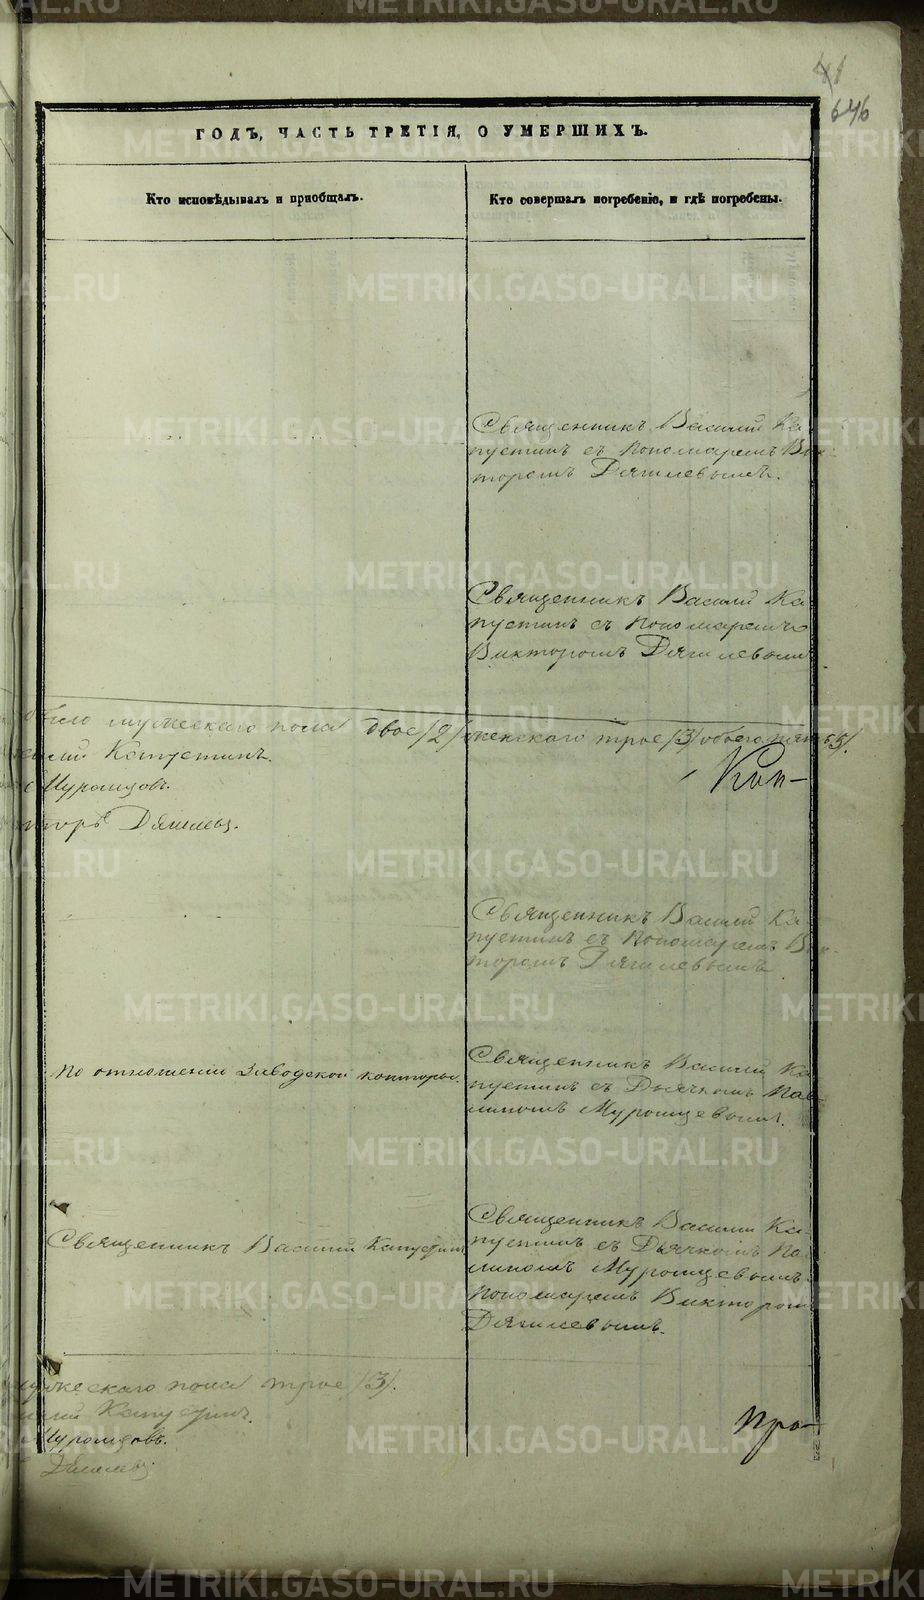 41
646
ГОДЪ, ЧАСТЬ ТРЕТІЯ, О УМЕРШИХЪ.
Кто исповѣдывалъ и приобщалъ.
Кто совершалъ погребеніе, и гдѣ погребены.
Священникъ Василій Ка-
пустинъ съ Пономаремъ Вик-
торомъ Дягилевымъ.
Священникъ Василій Ка-
пустинъ съ Пономаремъ
Викторомъ Дягилевымъ
было мужескаго пола двое /2/ женскаго трое /3/ обоего пять /5/.
силій Капустинъ.
Муромцовъ.
кторъ Дягилевъ.
Кап-
Священникъ Василій Ка-
пустинъ съ Пономаремъ Вик-
торомъ Дягилевымъ
По отношенію Заводской конторы.
Священникъ Василій Ка-
пустинъ съ Дьячкомъ Пав-
линомъ Муромцевымъ.
Священникъ Василій Капустинъ
Священникъ Василій Ка-
пустинъ съ Дьячкомъ Пав-
линомъ Муромцевымъ
Пономаремъ Викторомъ
Дягилевымъ.
мужескаго пола трое /3/.
силій Капустинъ.
Муромцовъ.
Дягилевъ
Про-
METRIKI.GASO-URAL.RU